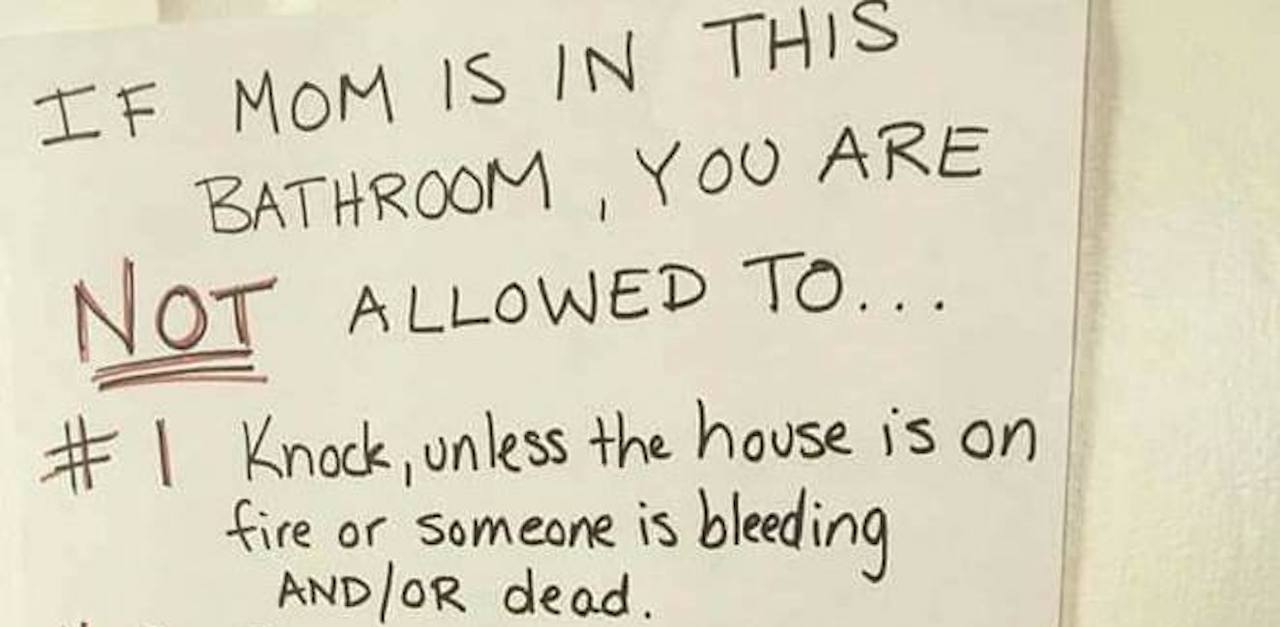 IF MOM IS IN THIS
BATHROOM, YOU ARE
NOT ALLOWED TO...
#1 Knock, unless the house is on
fire or someone is bleeding
AND/OR dead.